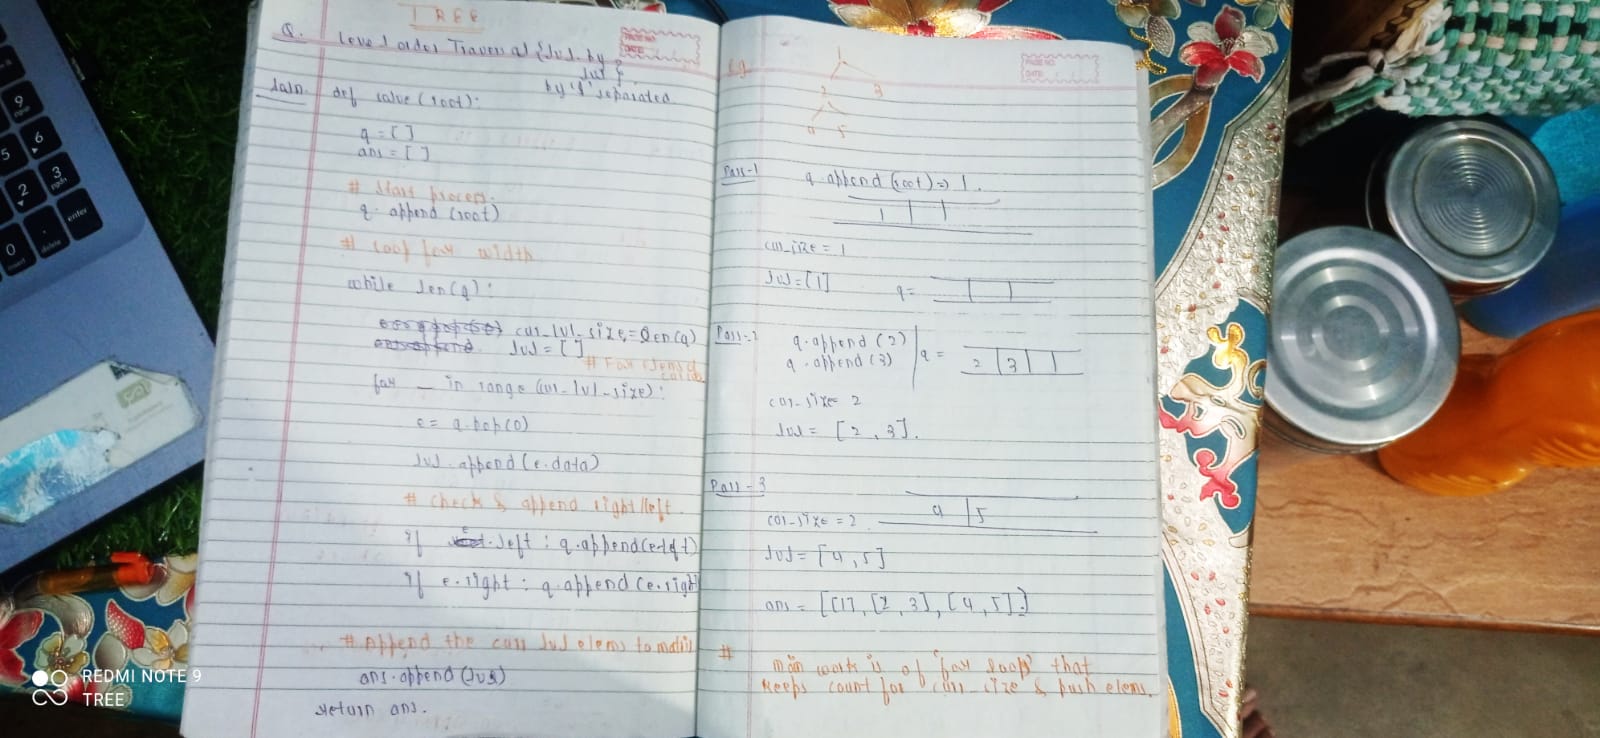 TREE
Q. Level order Traversal {lvl. by
lvl}
by '$' separated.
Soln. def solve (root):
q = [ ]
ans = [ ]
# Start process.
q. append (root)
# loop for width
while len(q):
cur_lvl_size = len(q)
lvl = [ ]
for _ in range (cur_lvl_size):
e = q.pop(0)
lvl.append (e.data)
# check & append right/left.
if e.left : q.append(e.left)
if e.right : q.append (e.right
# append the curr lvl elems to matrix
ans.append (lvl)
return ans.
PAGE NO.
DATE:
e.g.
1
2 3
4 5
PAGE NO.
DATE:
Pass-1 q.append (root) => 1.
1
cur_size = 1
lvl = [1] q =
Pass-2 q.append (2)
q.append (3) q = 2 3
cur_size = 2
lvl = [2, 3].
Pass-3
4 5
cur_size = 2
lvl = [4, 5]
ans = [[1], [2, 3], [4, 5].]
# main work is of 'for loop' that
keeps count for curr_size & push elems.
9
5 6
2 3
0 .
enter
delete
REDMI NOTE 9
TREE